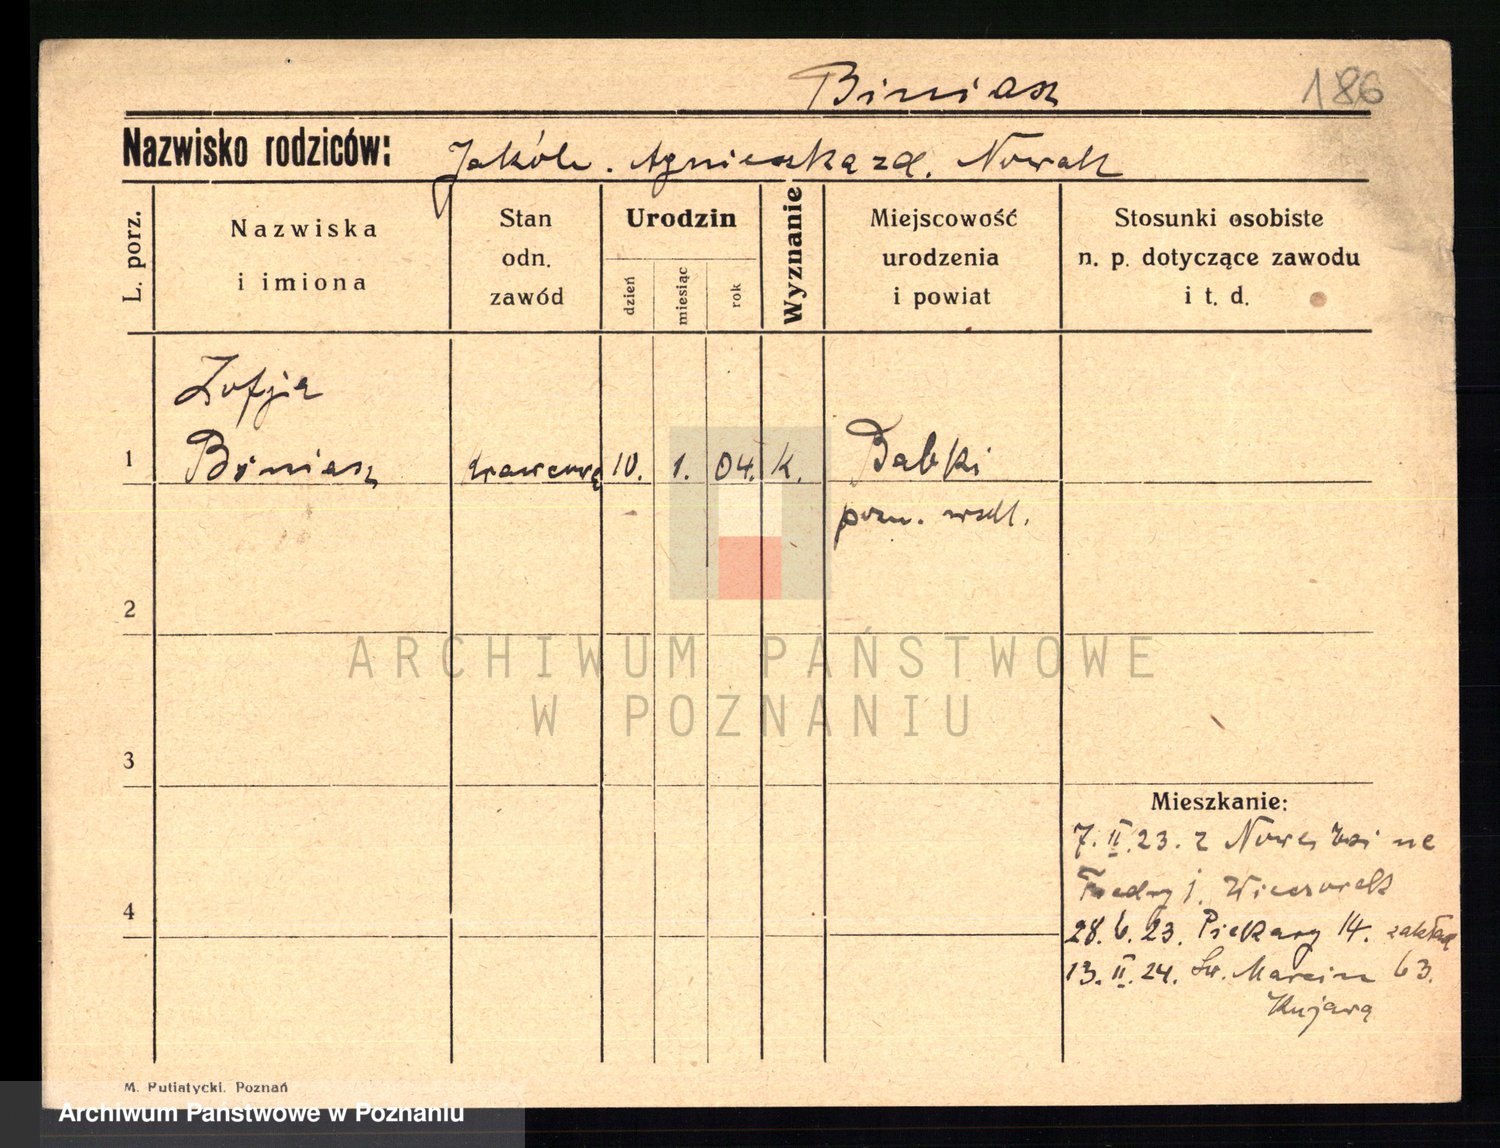 Biniasz
186
Nazwisko rodziców: Jakób. Agnieszka zd. Nowak
L. porz.
Nazwiska
i imiona
Stan
odn.
zawód
Urodzin
dzień
miesiąc
rok
Wyznanie
Miejscowość
urodzenia
i powiat
Stosunki osobiste
n. p. dotyczące zawodu
i t. d.
Zofja
1 Biniasz krawcowa 10. 1. 04. k. Babki
pozn. wsch.
2
3
Mieszkanie:
7. II. 23. z Nowej Wsi na
Fredry j. Wieczorek
4
28. 6. 23. Piekary 14. zakład
13. II. 24. Św. Marcin 63.
Kujawa
M. Putiatycki. Poznań
ARCHIWUM PAŃSTWOWE
W POZNANIU
Archiwum Państwowe w Poznaniu